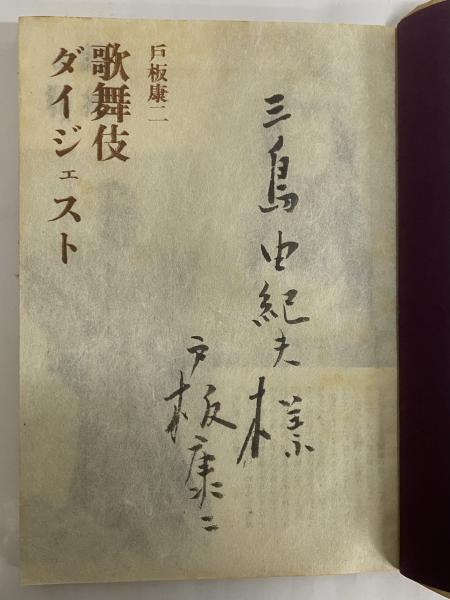 三島由紀夫様
戸板康二
戸板康二
歌舞伎
ダイジェスト